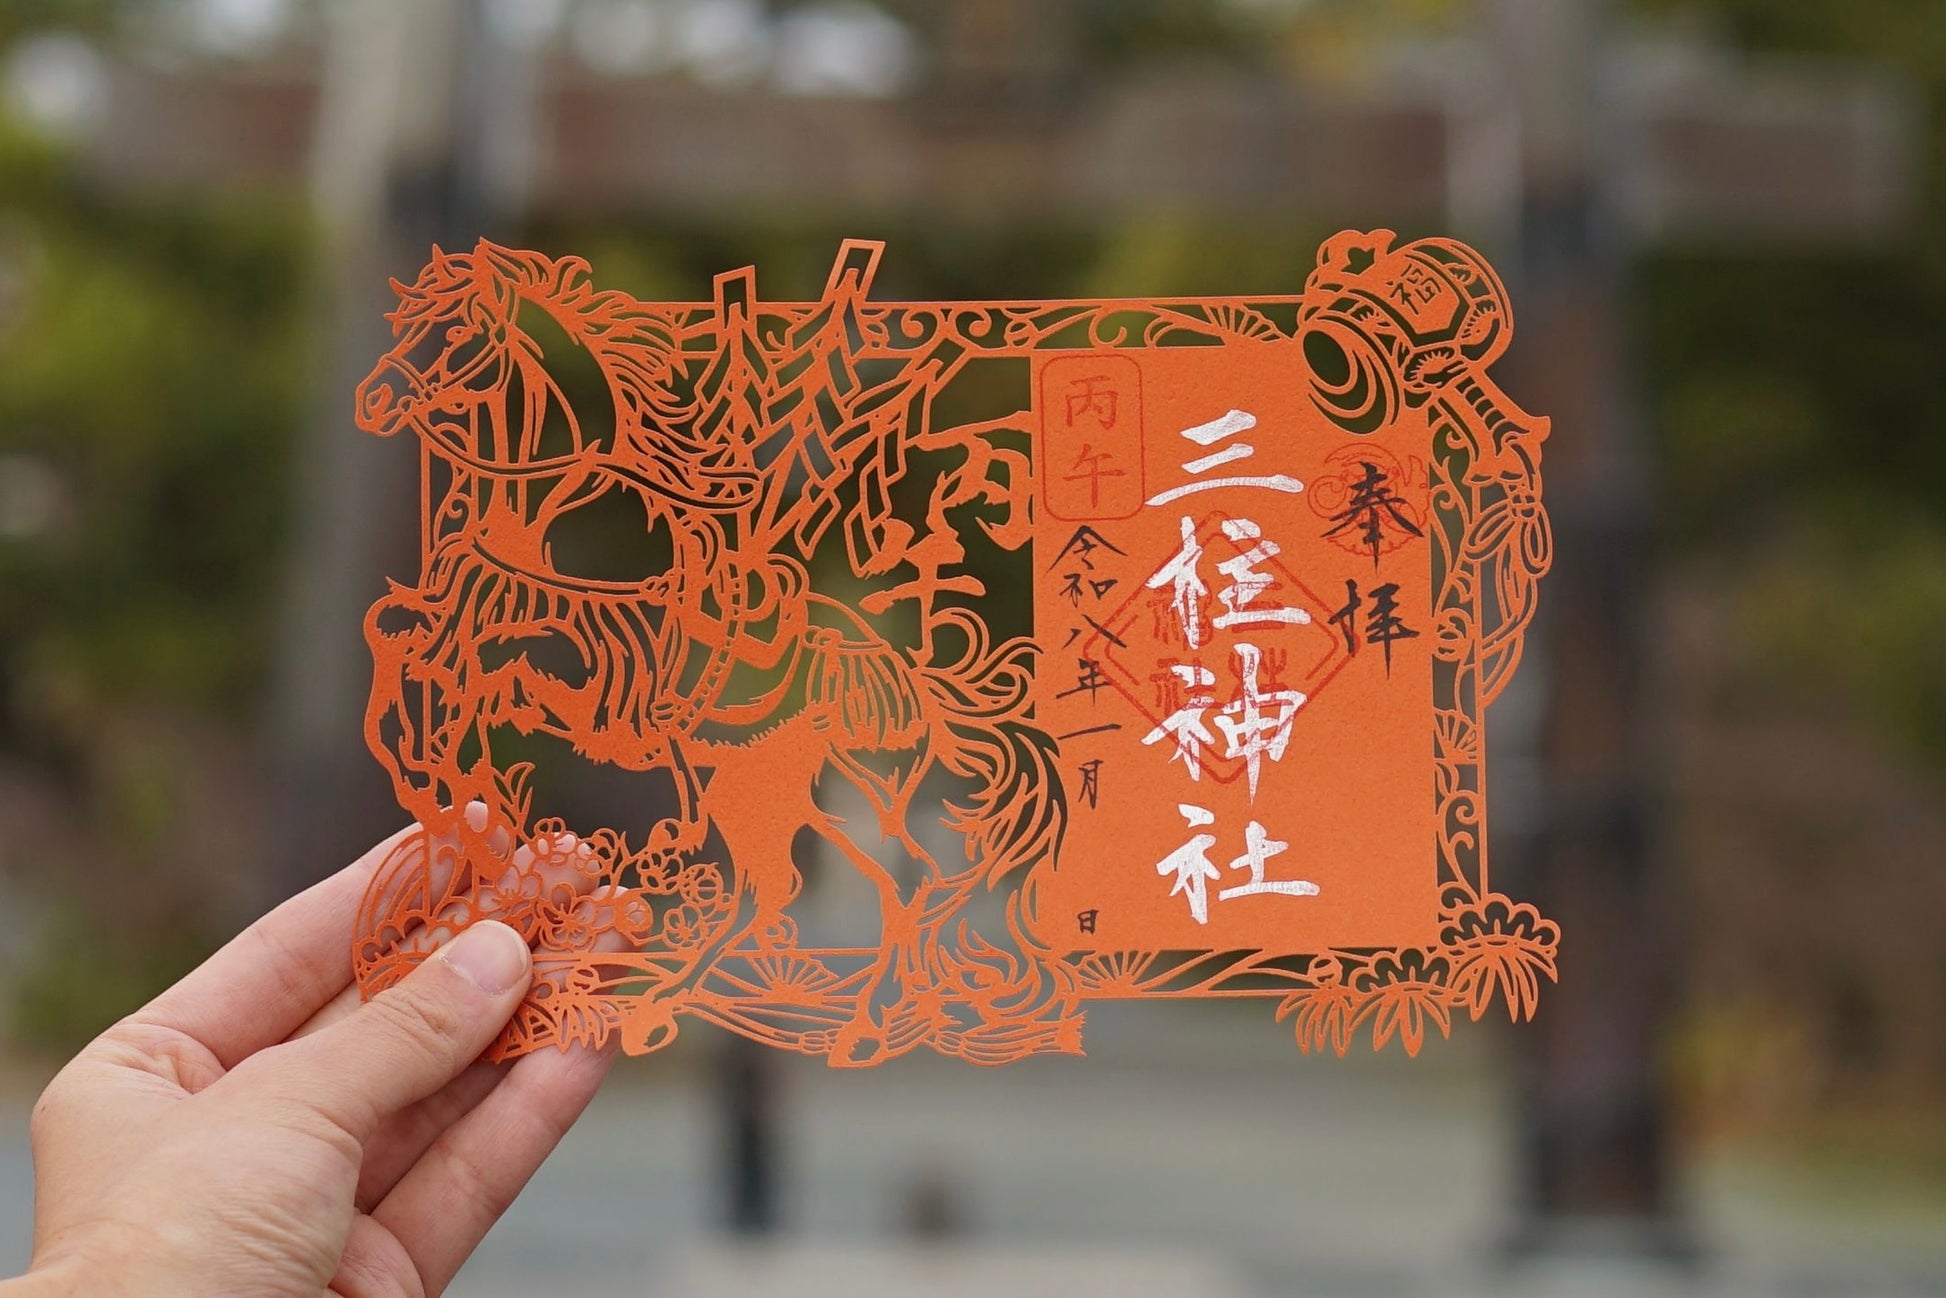 奉拝
三柱神社
丙午
令和八年一月 日
丙午
福